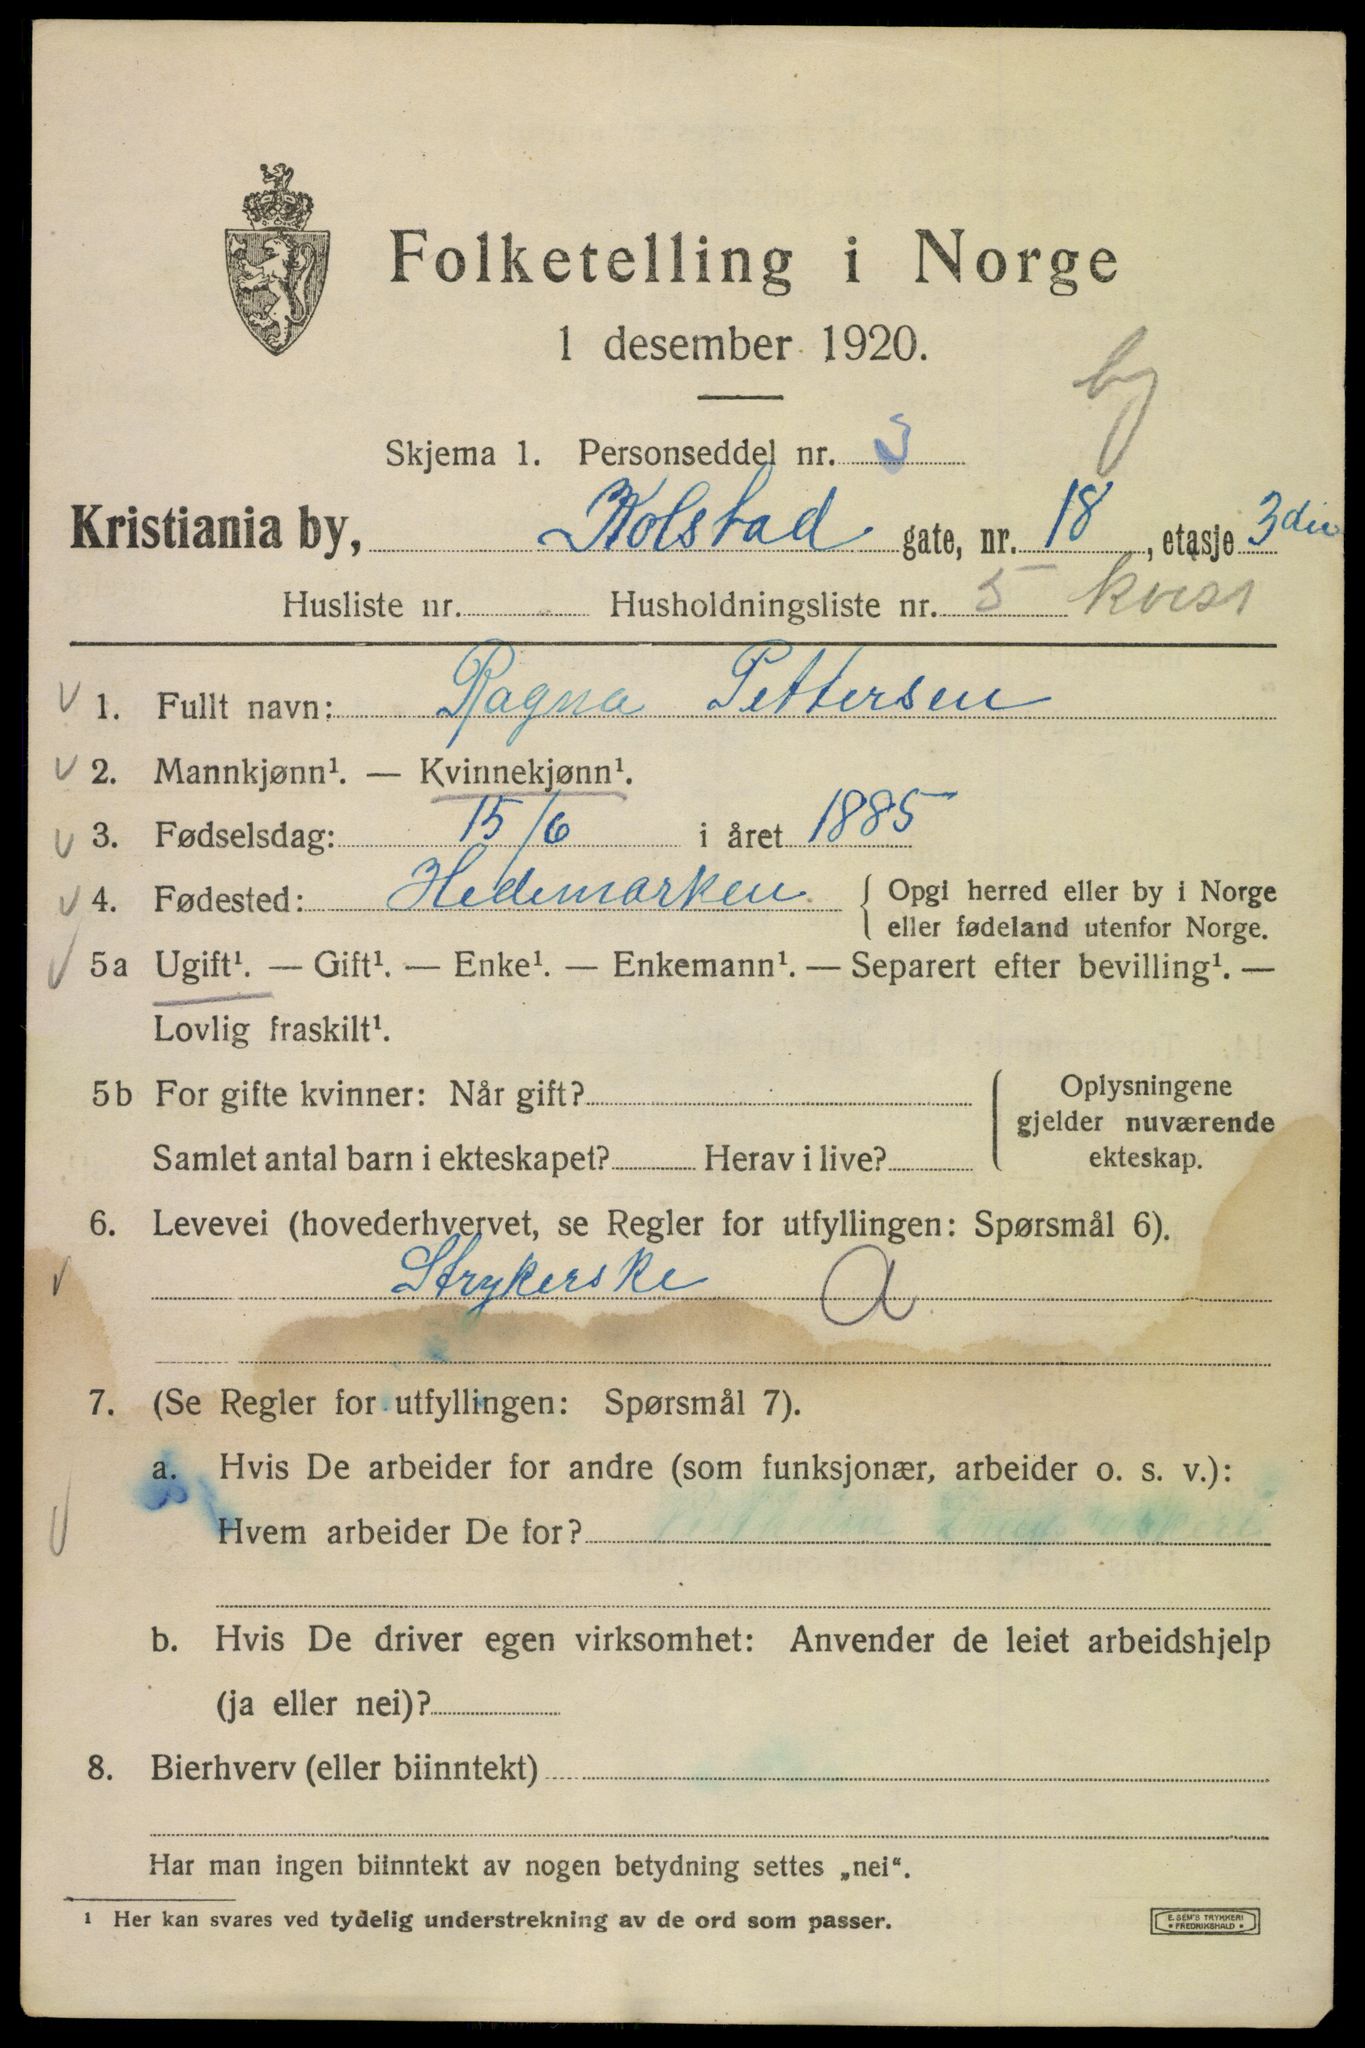 Folketelling i Norge
1 desember 1920.
by
Skjema 1. Personseddel nr. 3
Kristiania by, Kolstad gate, nr. 18, etasje 3die
Husliste nr. Husholdningsliste nr. 5 kvist
1. Fullt navn: Ragna Pettersen
2. Mannkjønn¹. — Kvinnekjønn¹.
3. Fødselsdag: 15/6 i året 1885
4. Fødested: Hedemarken { Opgi herred eller by i Norge
eller fødeland utenfor Norge.
5a Ugift¹. — Gift¹. — Enke¹. — Enkemann¹. — Separert efter bevilling¹. —
Lovlig fraskilt¹.
5b For gifte kvinner: Når gift? Oplysningene
gjelder nuværende
Samlet antal barn i ekteskapet? Herav i live? ekteskap.
6. Levevei (hovederhvervet, se Regler for utfyllingen: Spørsmål 6).
Strykerske A
7. (Se Regler for utfyllingen: Spørsmål 7).
a. Hvis De arbeider for andre (som funksjonær, arbeider o. s. v.):
Hvem arbeider De for?
b. Hvis De driver egen virksomhet: Anvender de leiet arbeidshjelp
(ja eller nei)?
8. Bierhverv (eller biinntekt)
Har man ingen biinntekt av nogen betydning settes „nei“.
¹ Her kan svares ved tydelig understrekning av de ord som passer.
E. SEM'S TRYKKERI
* FREDRIKSHALD *